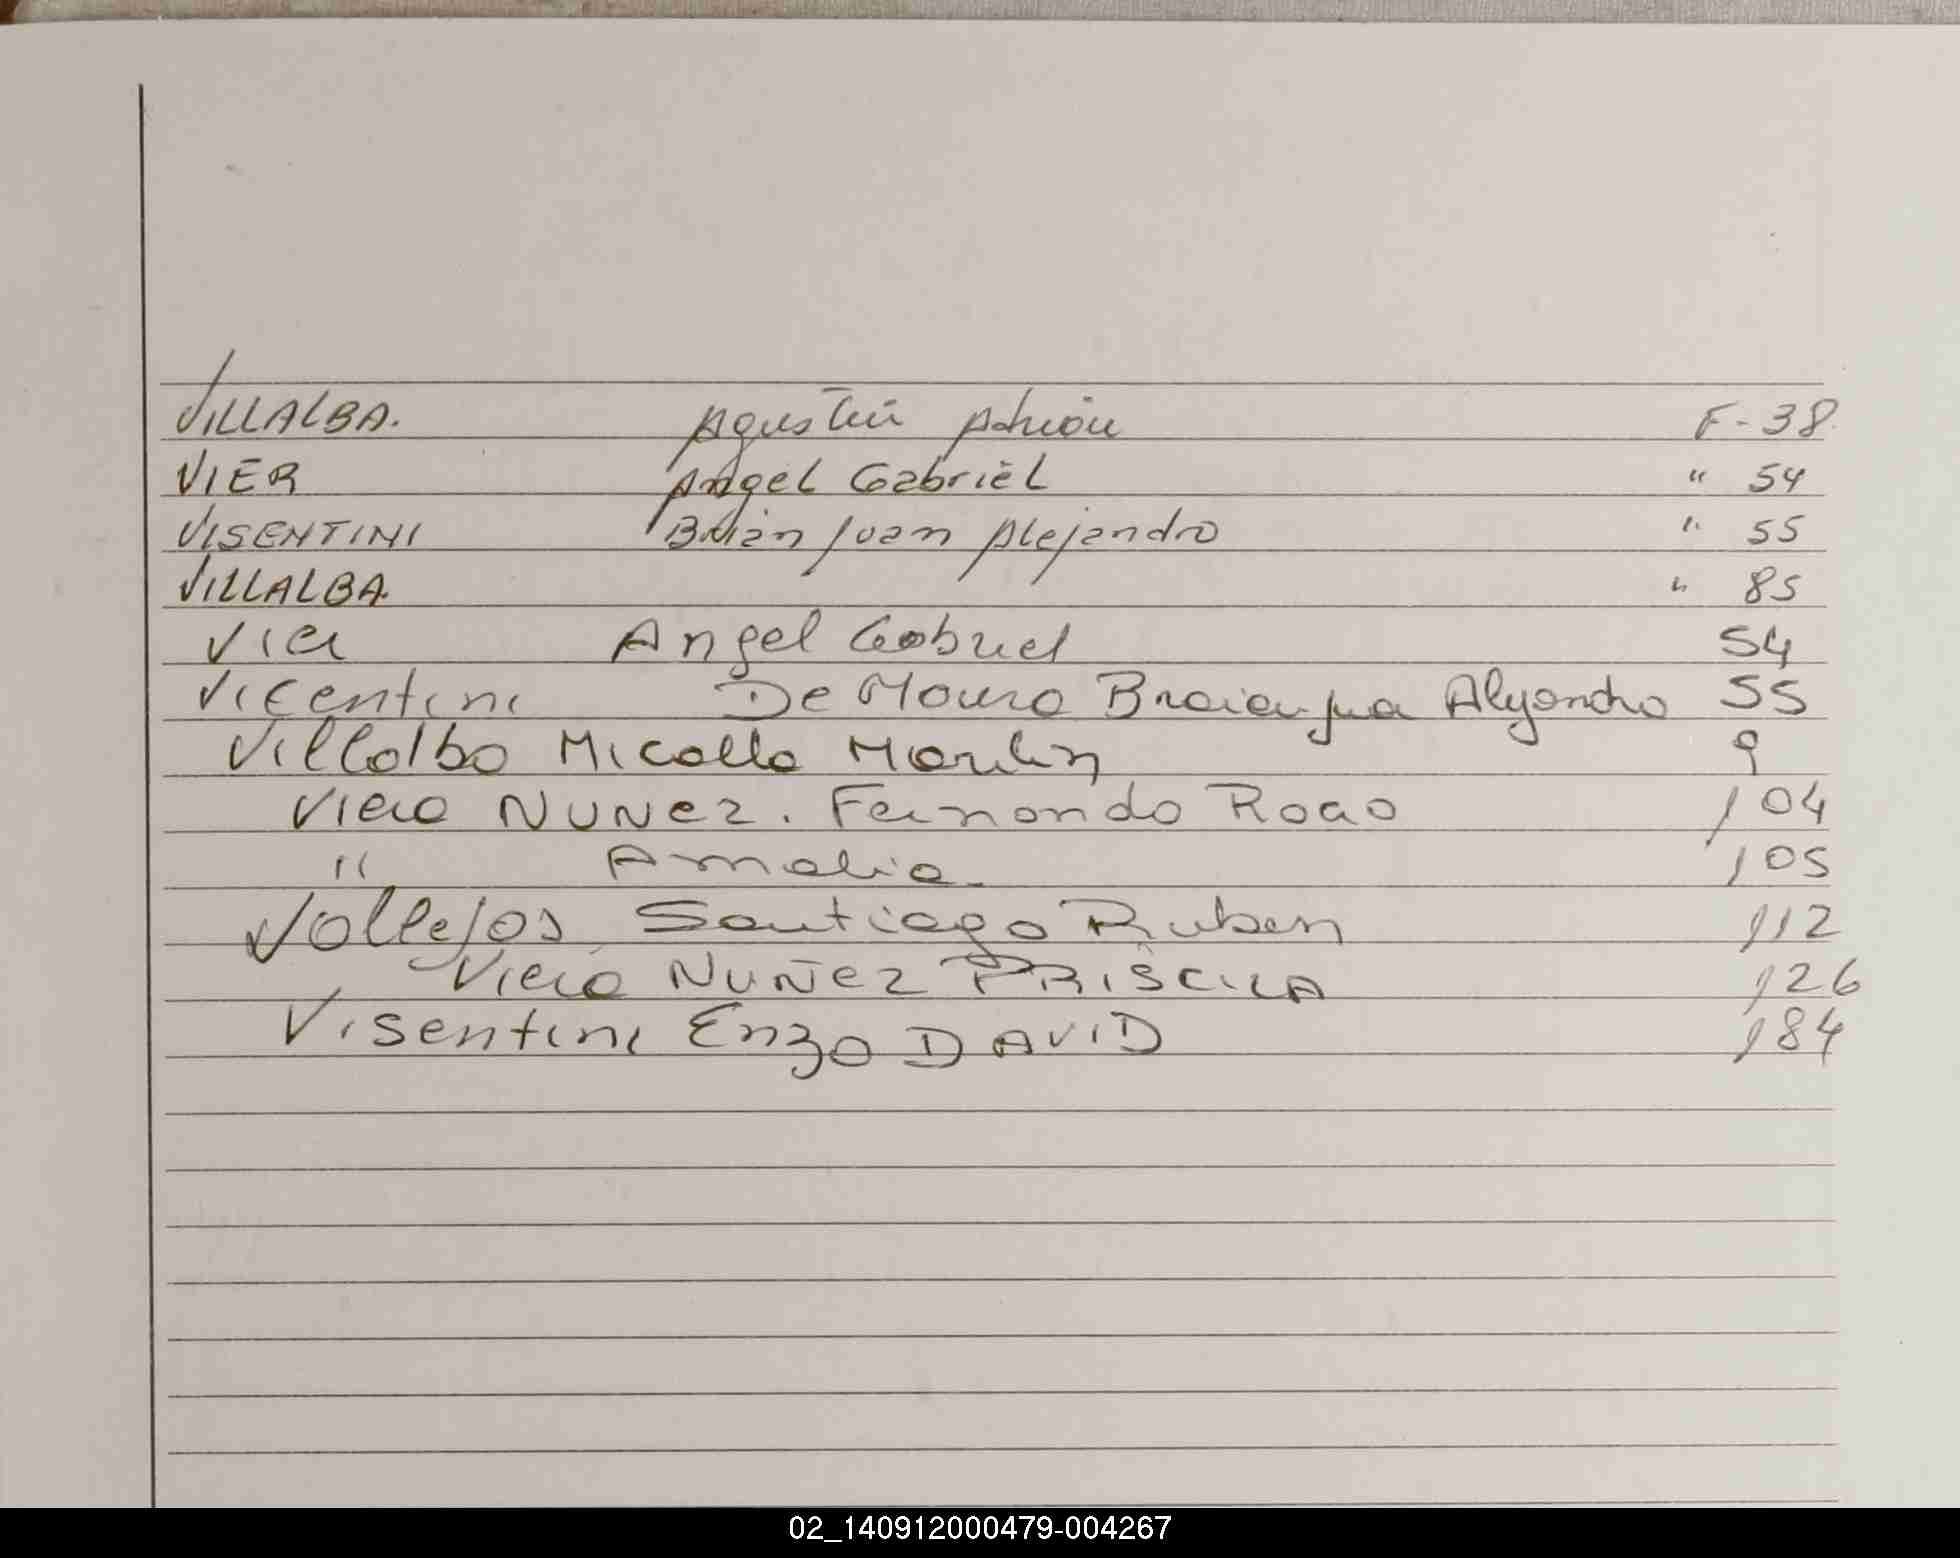 VILLALBA. Agustín Adrián F-38
VIER Angel Gabriel " 54
VISENTINI Brian Juan Alejandro " 55
VILLALBA. " 85
Vier Angel Gabriel 54
Vicentini De Moura Braian Jua Alejandro 55
Villalba Micaella 9
Viera NUNez. Fernando 104
" Amalia. 105
Vallejos Santiago Ruben 112
Viera NUÑez PRISCILA 126
Visentini Enzo DAVID 184
02_140912000479-004267